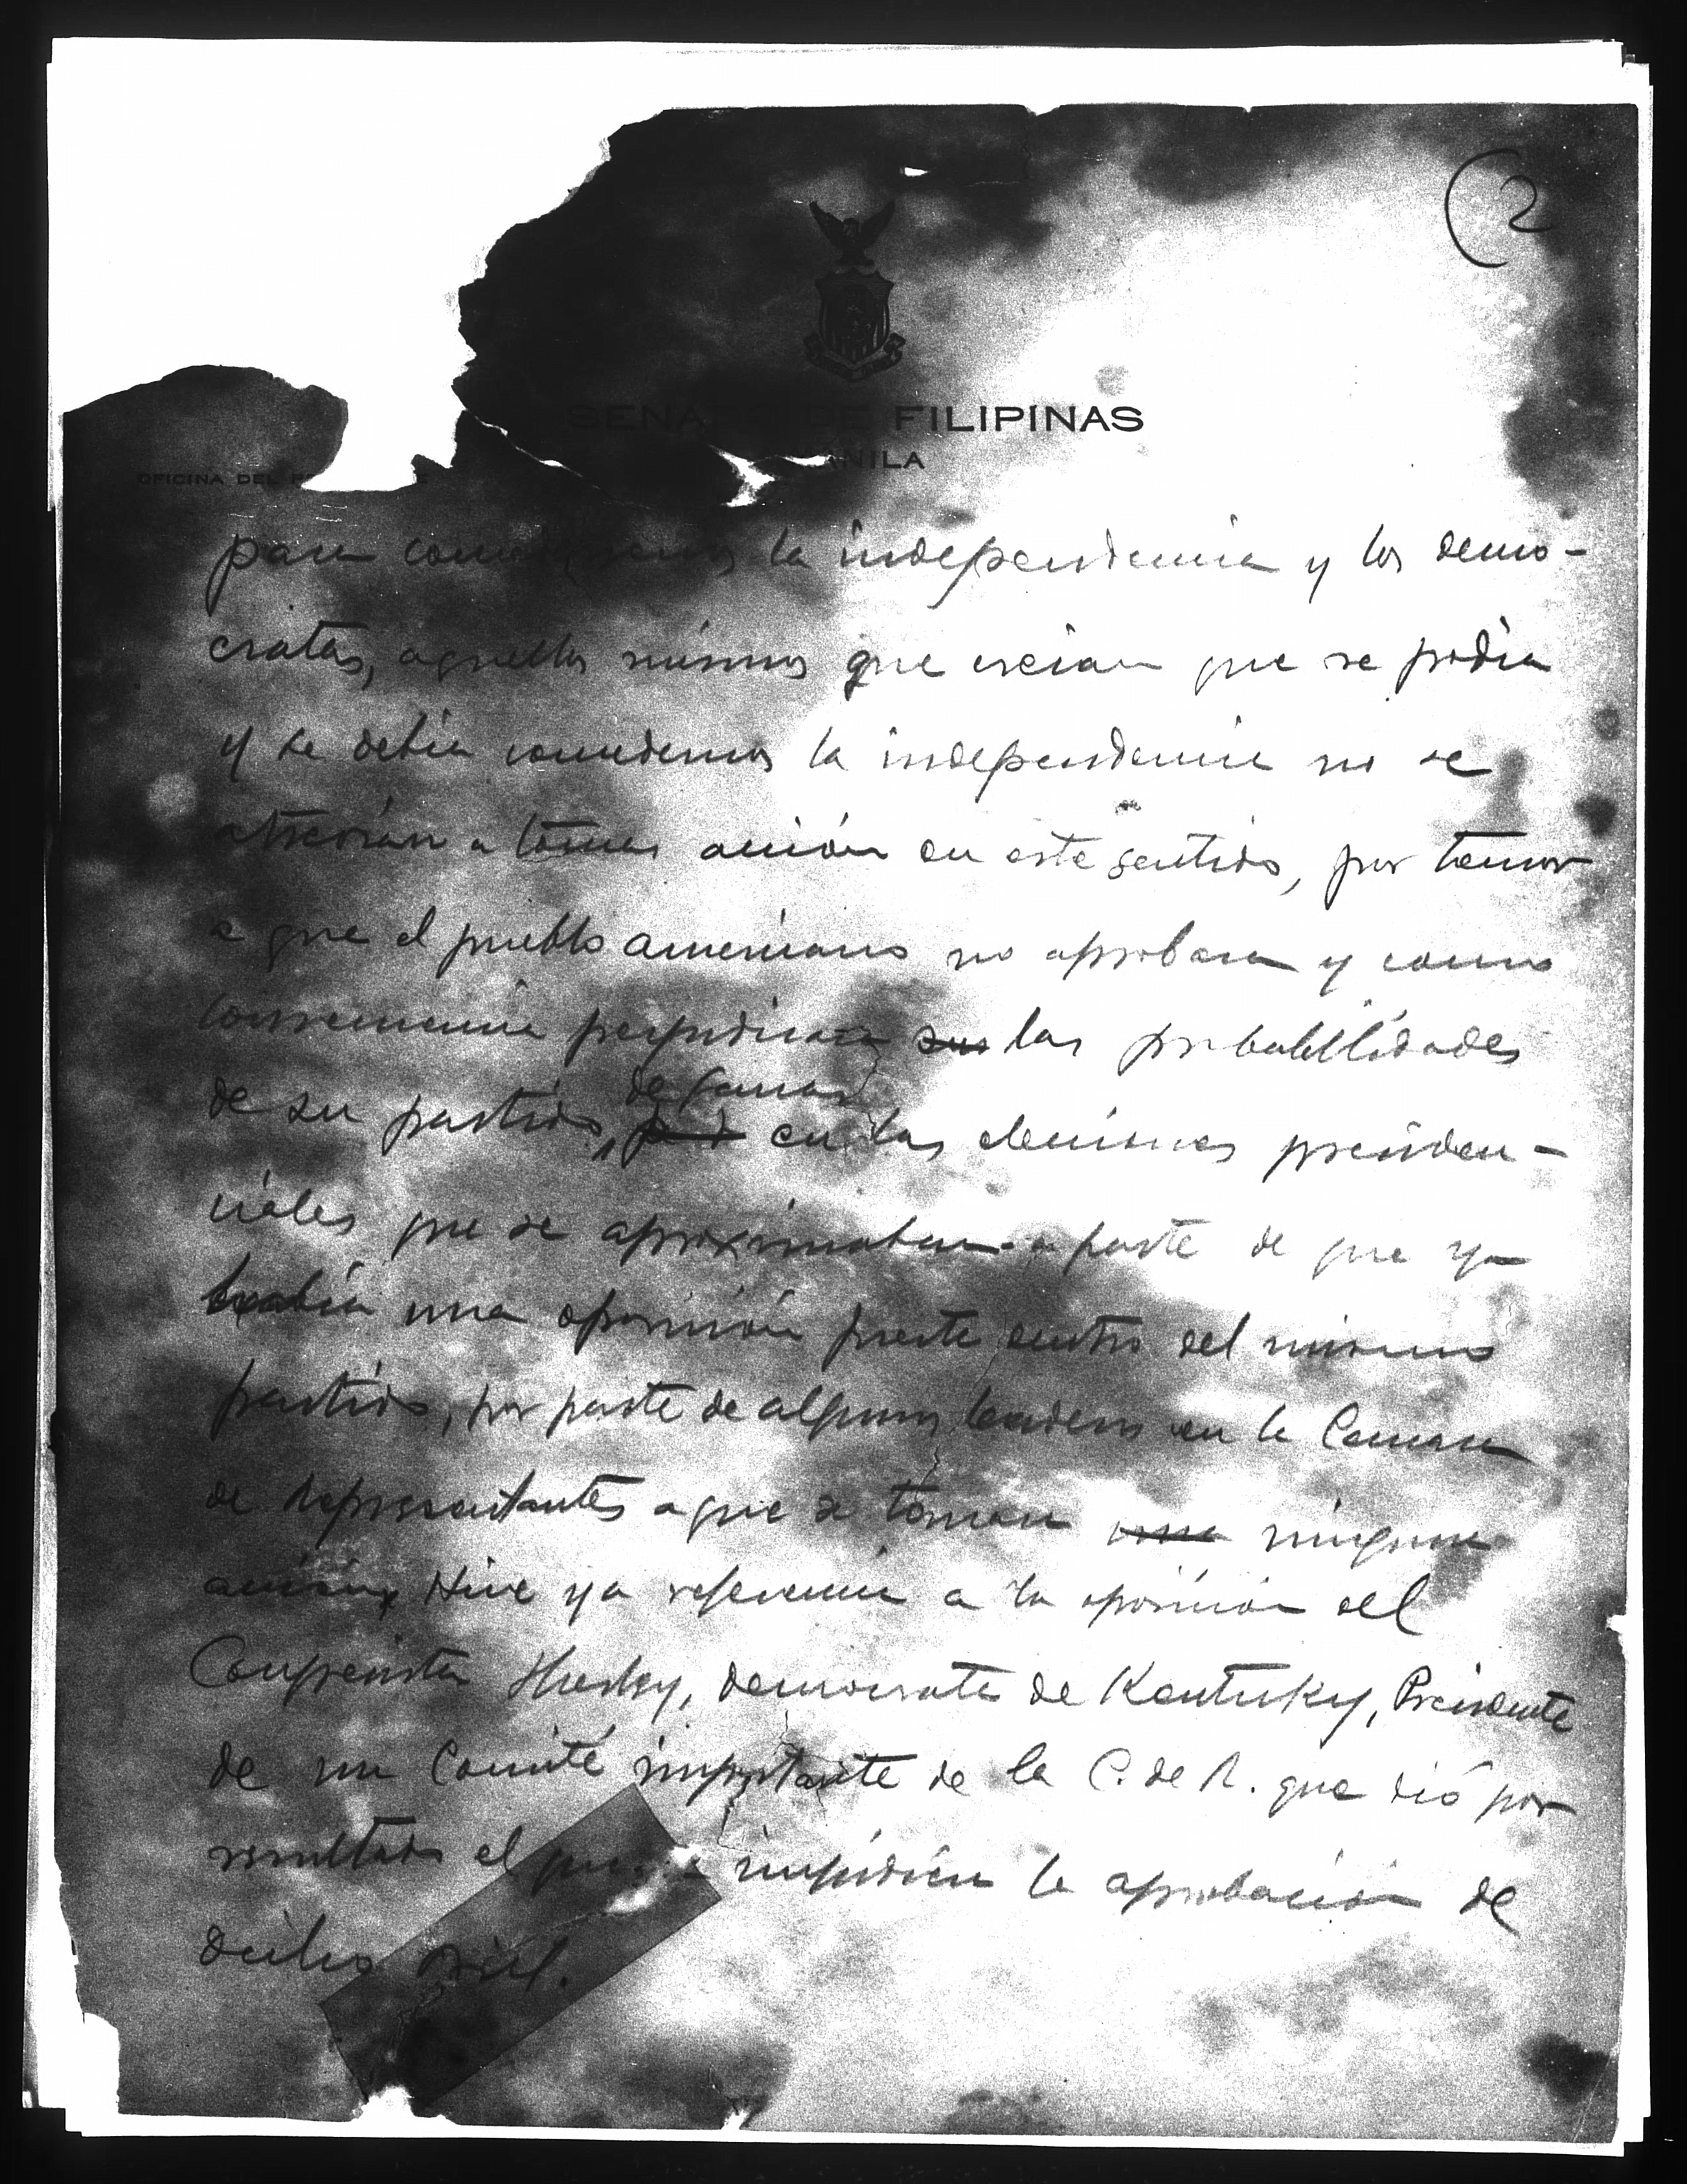 (2
SENADO DE FILIPINAS
MANILA
OFICINA DEL
para la independencia y los demo-
cratas, aquellos mismos que creian que se podia
y se debia concedernos la independencia no se
atreverían a tomar acción en este sentido, por temor
a que el pueblo americano no aprobara y como
consecuencia perjudicara sus las probabilidades
de ganar
de su partido, en las elecciones presiden-
ciales que se aproximaban a parte de que ya
había una oposición fuerte dentro del mismo
partido, por parte de algunos leaders en la Camara
de Representantes a que se tomara una ninguna
acción Hice ya referencia a la oposición del
Congresista democrata de Kentucky, Presidente
de un Comité importante de la C. de R. que dió por
resultado el que se impidiera la aprobación de
dicho bill.